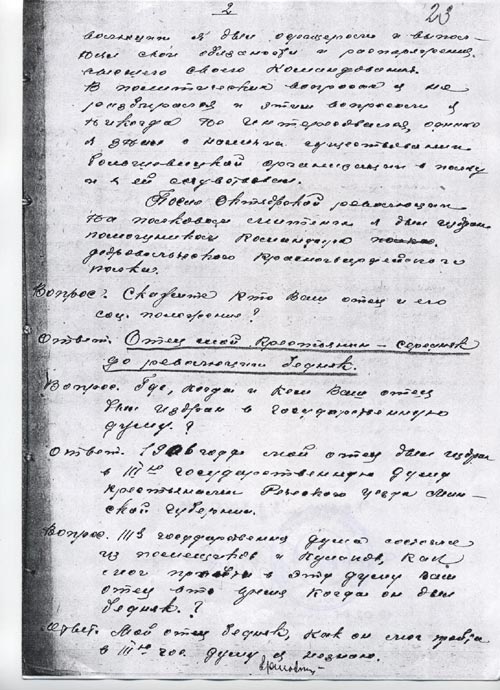 2
23
волюции я был офицером и выпол-
нял свои обязанности и распоряжения
высшего своего Командования.
В политических вопросах я не
разбирался и этими вопросами я
никогда не интересовался, однако
я знал о наличии существования
большевицкой организации в полку
и я ей сочувствовал.
После Октябрьской революции
на полковом митинге я был избран
помощником Командира полка
добровольческого Красногвардейского
полка.
Вопрос: Скажите кто Ваш отец и его
соц. положение?
Ответ: Отец мой Крестьянин – середняк
до революции бедняк.
Вопрос. Где, когда и кем Ваш отец
был избран в государственную
думу?
Ответ. 1906 году мой отец был избран
в III-ю государственную думу
крестьянами уезда Мин-
ской губернии.
Вопрос. III-я государственная дума состояла
из помещиков и Кулаков, как
мог пройти в эту думу Ваш
отец в то время когда он был
бедняк?
Ответ: Мой отец бедняк, как он мог пройти
в III-ю гос. думу я не знаю.